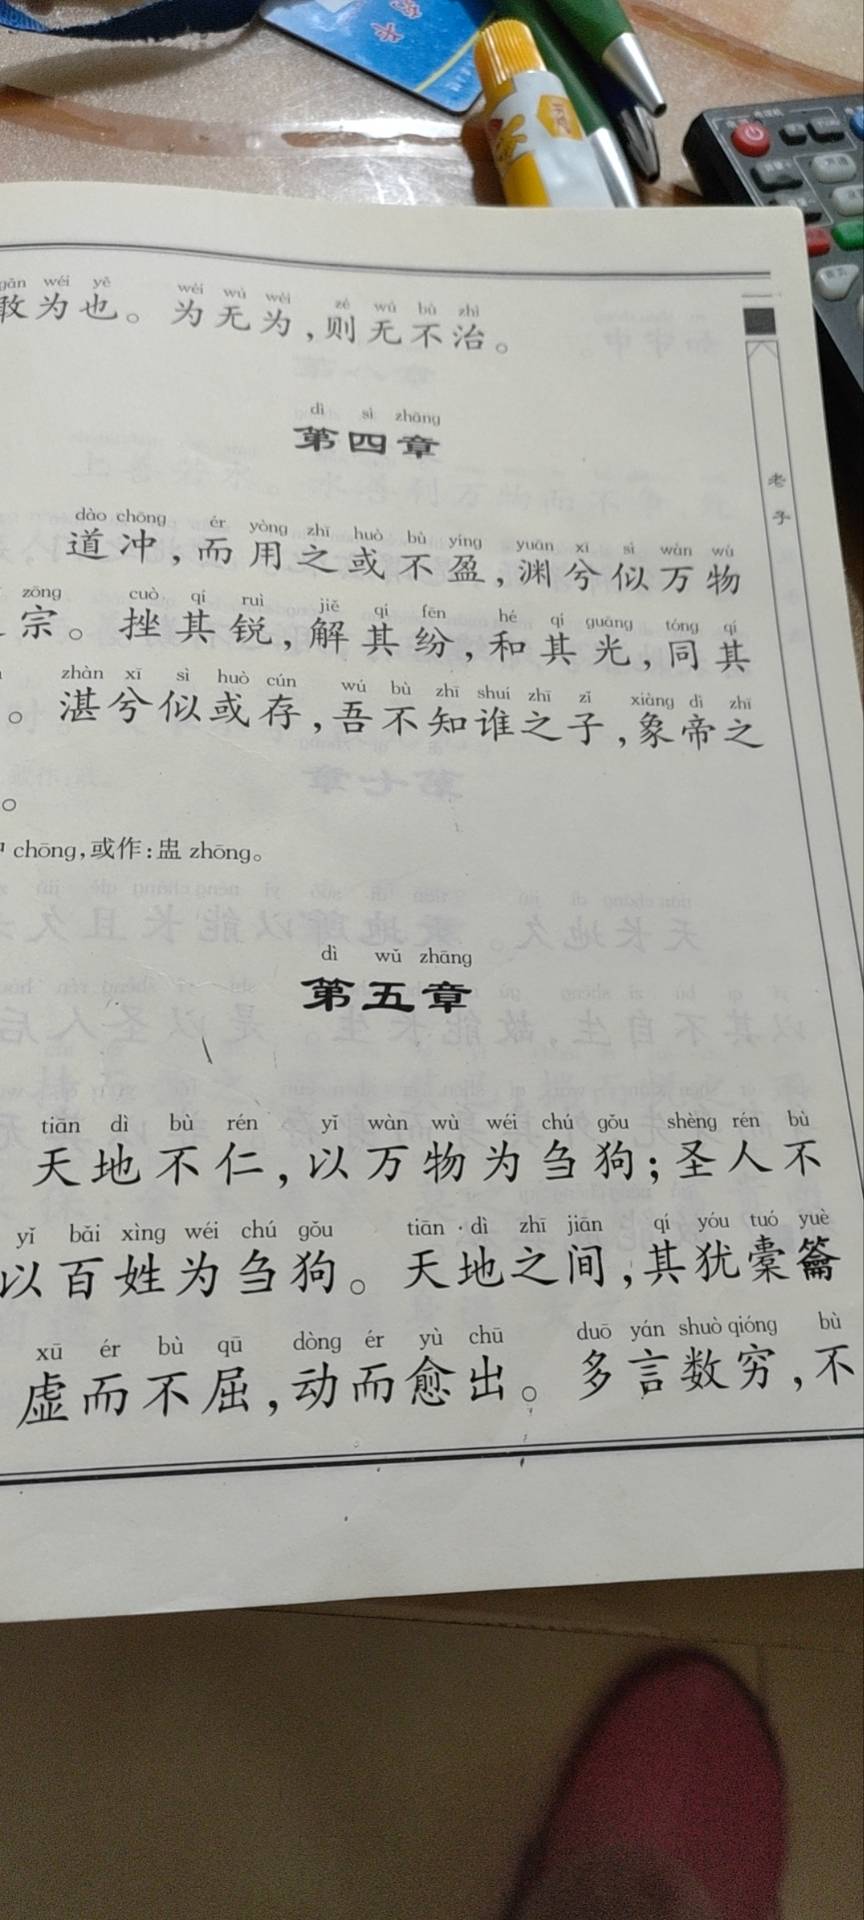 gǎn wéi yě wéi wú wéi zé wú bù zhì
敢为也。为无为,则无不治。
dì sì zhāng
第四章
老子
dào chōng ér yòng zhī huò bù yíng yuān xī sì wàn wù
道冲,而用之或不盈,渊兮似万物
zōng cuò qí ruì jiě qí fēn hé qí guāng tóng qí
宗。挫其锐,解其纷,和其光,同其
zhàn xī sì huò cún wú bù zhī shuí zhī zǐ xiàng dì zhī
。湛兮似或存,吾不知谁之子,象帝之
。
chōng,或作:盅 zhōng。
dì wǔ zhāng
第五章
tiān dì bù rén yǐ wàn wù wéi chú gǒu shèng rén bù
天地不仁,以万物为刍狗;圣人不
yǐ bǎi xìng wéi chú gǒu tiān dì zhī jiān qí yóu tuó yuè
以百姓为刍狗。天地之间,其犹橐籥
xū ér bù qū dòng ér yù chū duō yán shuò qióng bù
虚而不屈,动而愈出。多言数穷,不